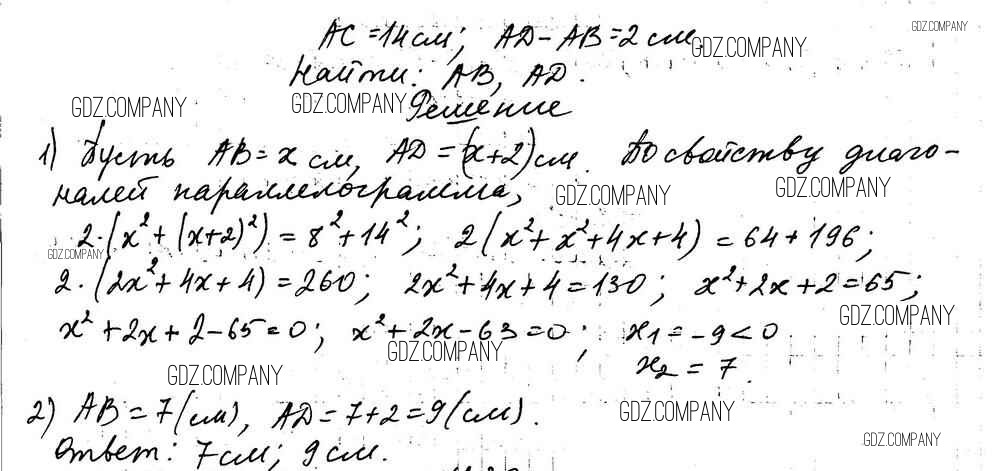 AC = 14 см; AD - AB = 2 см.
GDZ.COMPANY
GDZ.COMPANY
Найти: AB, AD.
GDZ.COMPANY
GDZ.COMPANY
Решение
1) Пусть AB = x см, AD = (x+2) см. По свойству диаго-
налей параллелограмма,
GDZ.COMPANY
GDZ.COMPANY
2·(x²+(x+2)²) = 8²+14²; 2(x²+x²+4x+4) = 64+196;
GDZ.COMPANY
2·(2x²+4x+4) = 260; 2x²+4x+4 = 130; x²+2x+2 = 65;
GDZ.COMPANY
x²+2x+2-65 = 0; x²+2x-63 = 0; x₁ = -9 < 0
GDZ.COMPANY
x₂ = 7.
GDZ.COMPANY
2) AB = 7 (см), AD = 7+2 = 9 (см).
GDZ.COMPANY
GDZ.COMPANY
Ответ: 7 см; 9 см.